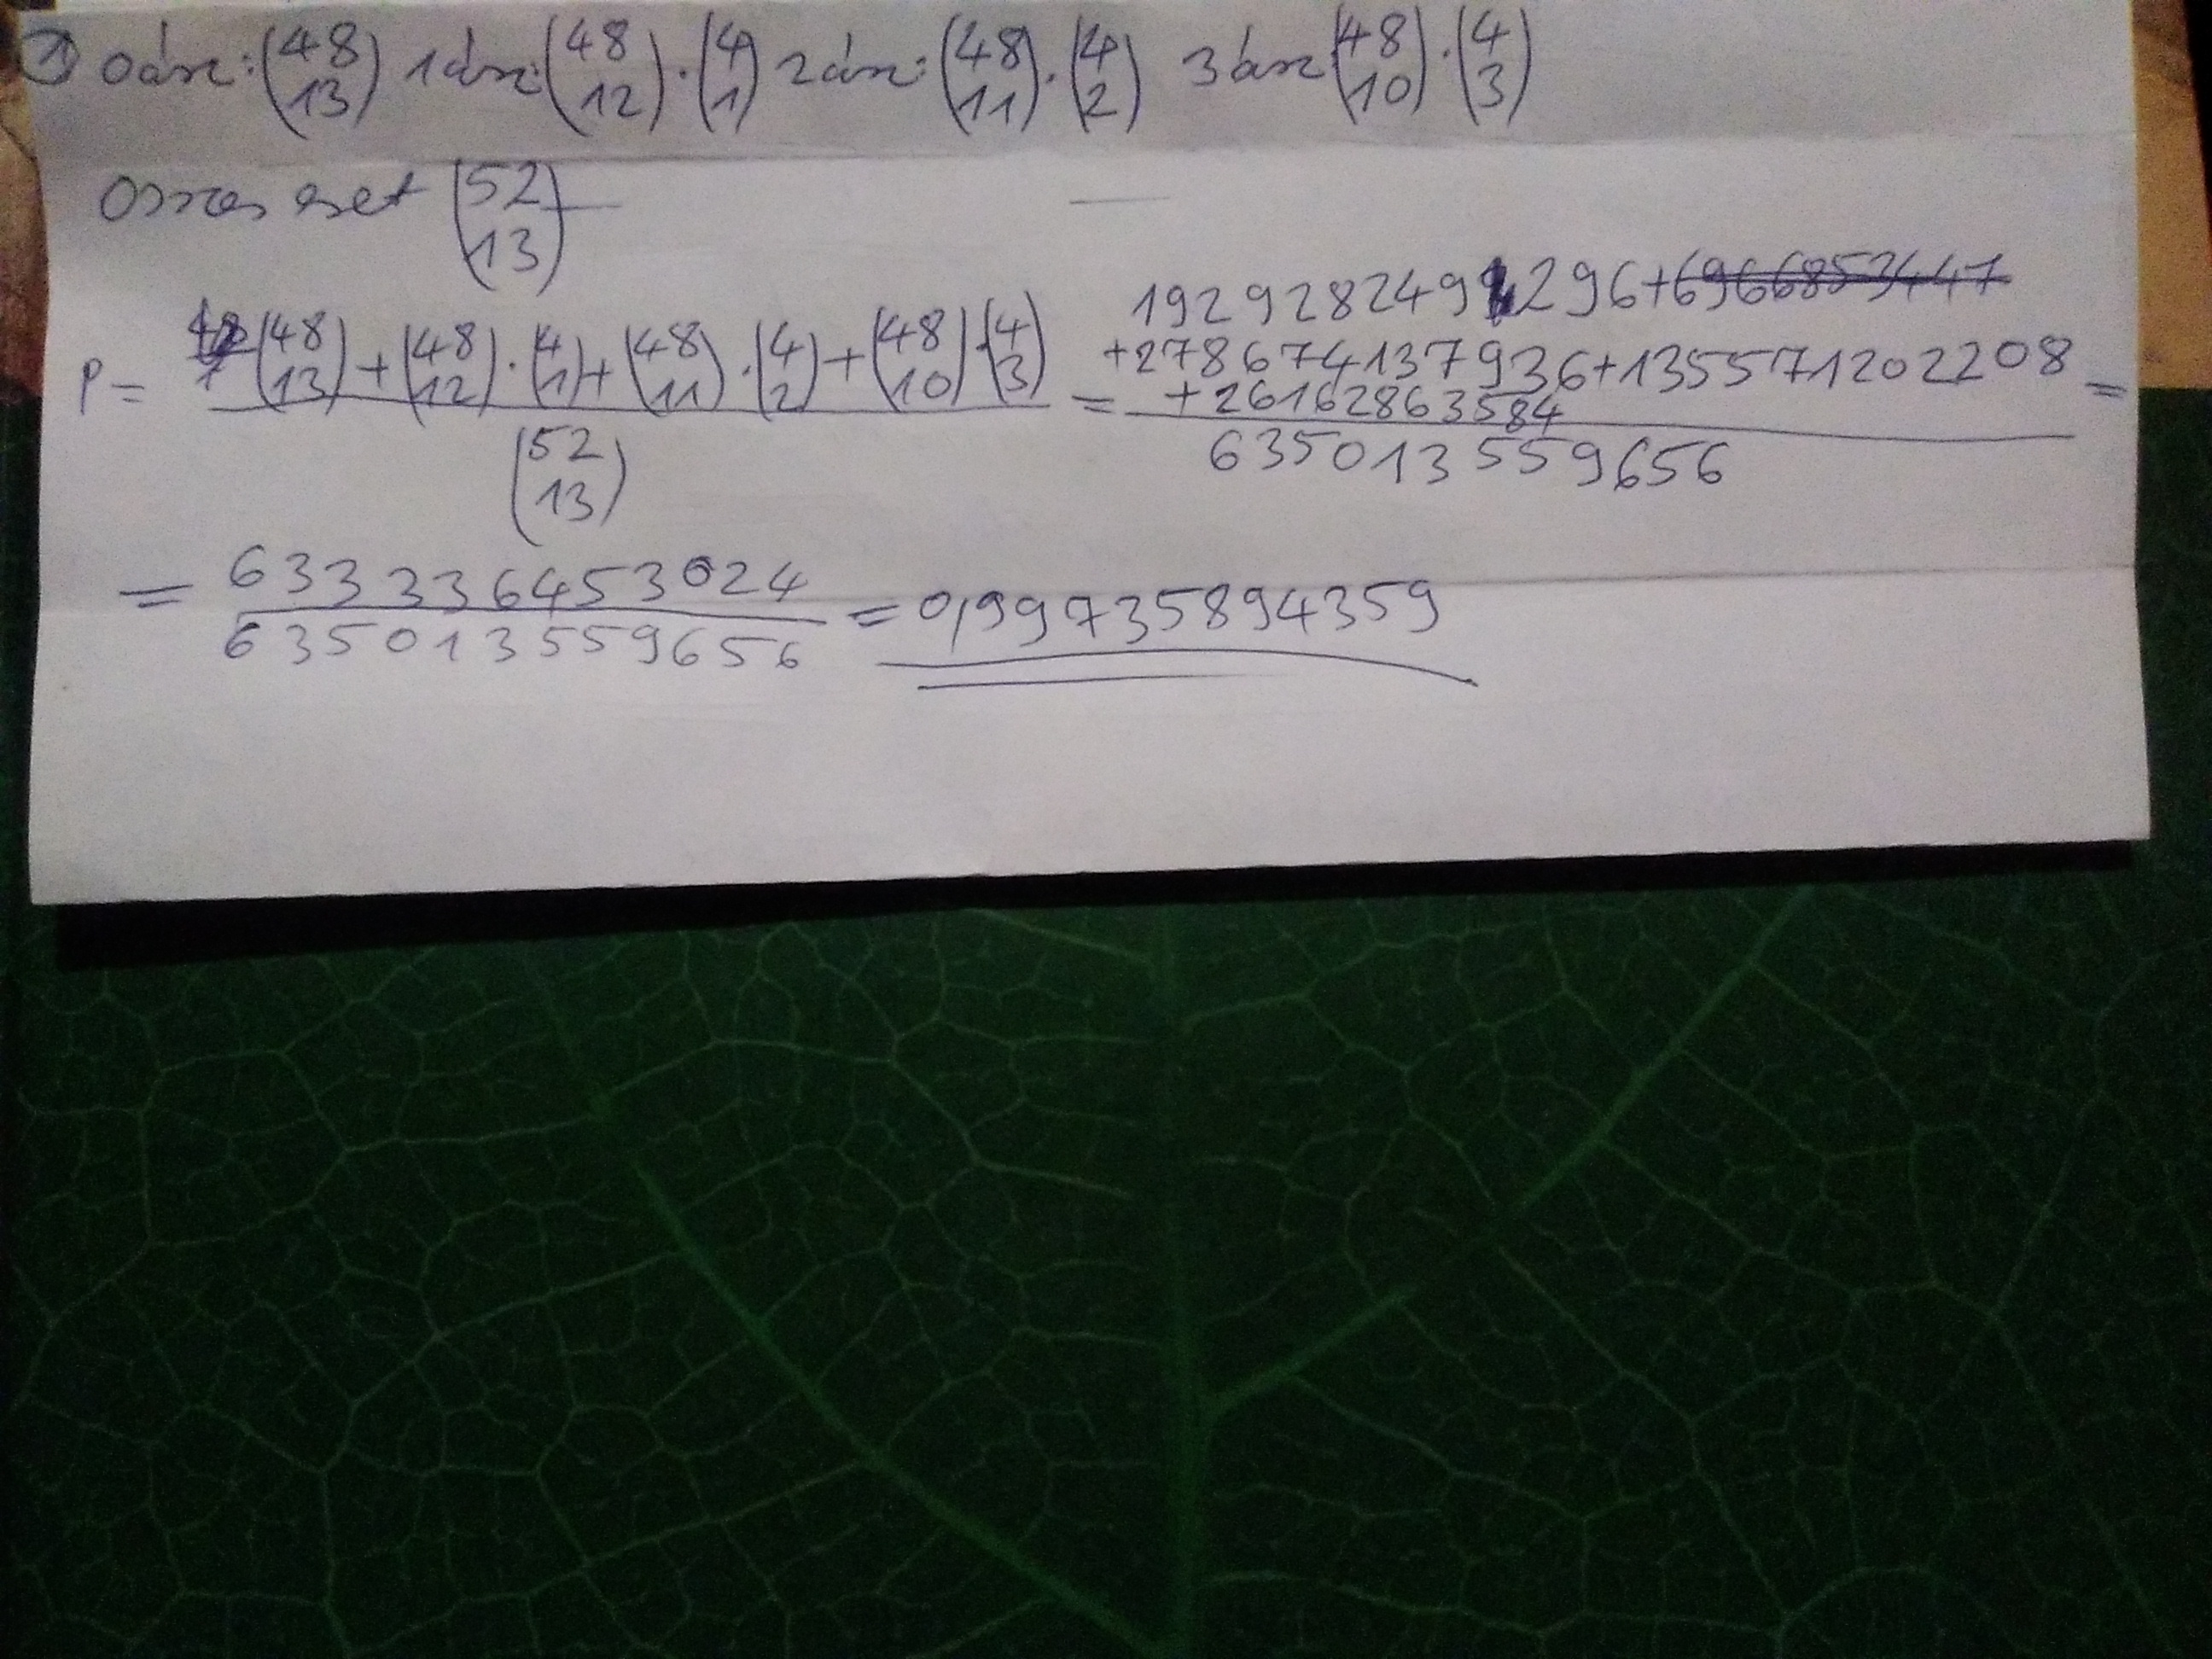 ① 0ász: (48 13) 1ász: (48 12) · (4 1) 2ász: (48 11) · (4 2) 3ász: (48 10) · (4 3)
Összes eset (52 13)
P = ((48 13) + (48 12) · (4 1) + (48 11) · (4 2) + (48 10) · (4 3)) / (52 13) = (192928249296 + 69668534​47 + 278674137936 + 135571202208 + 26162863584) / 635013559656 =
= 633336453024 / 635013559656 = 0,99735894359